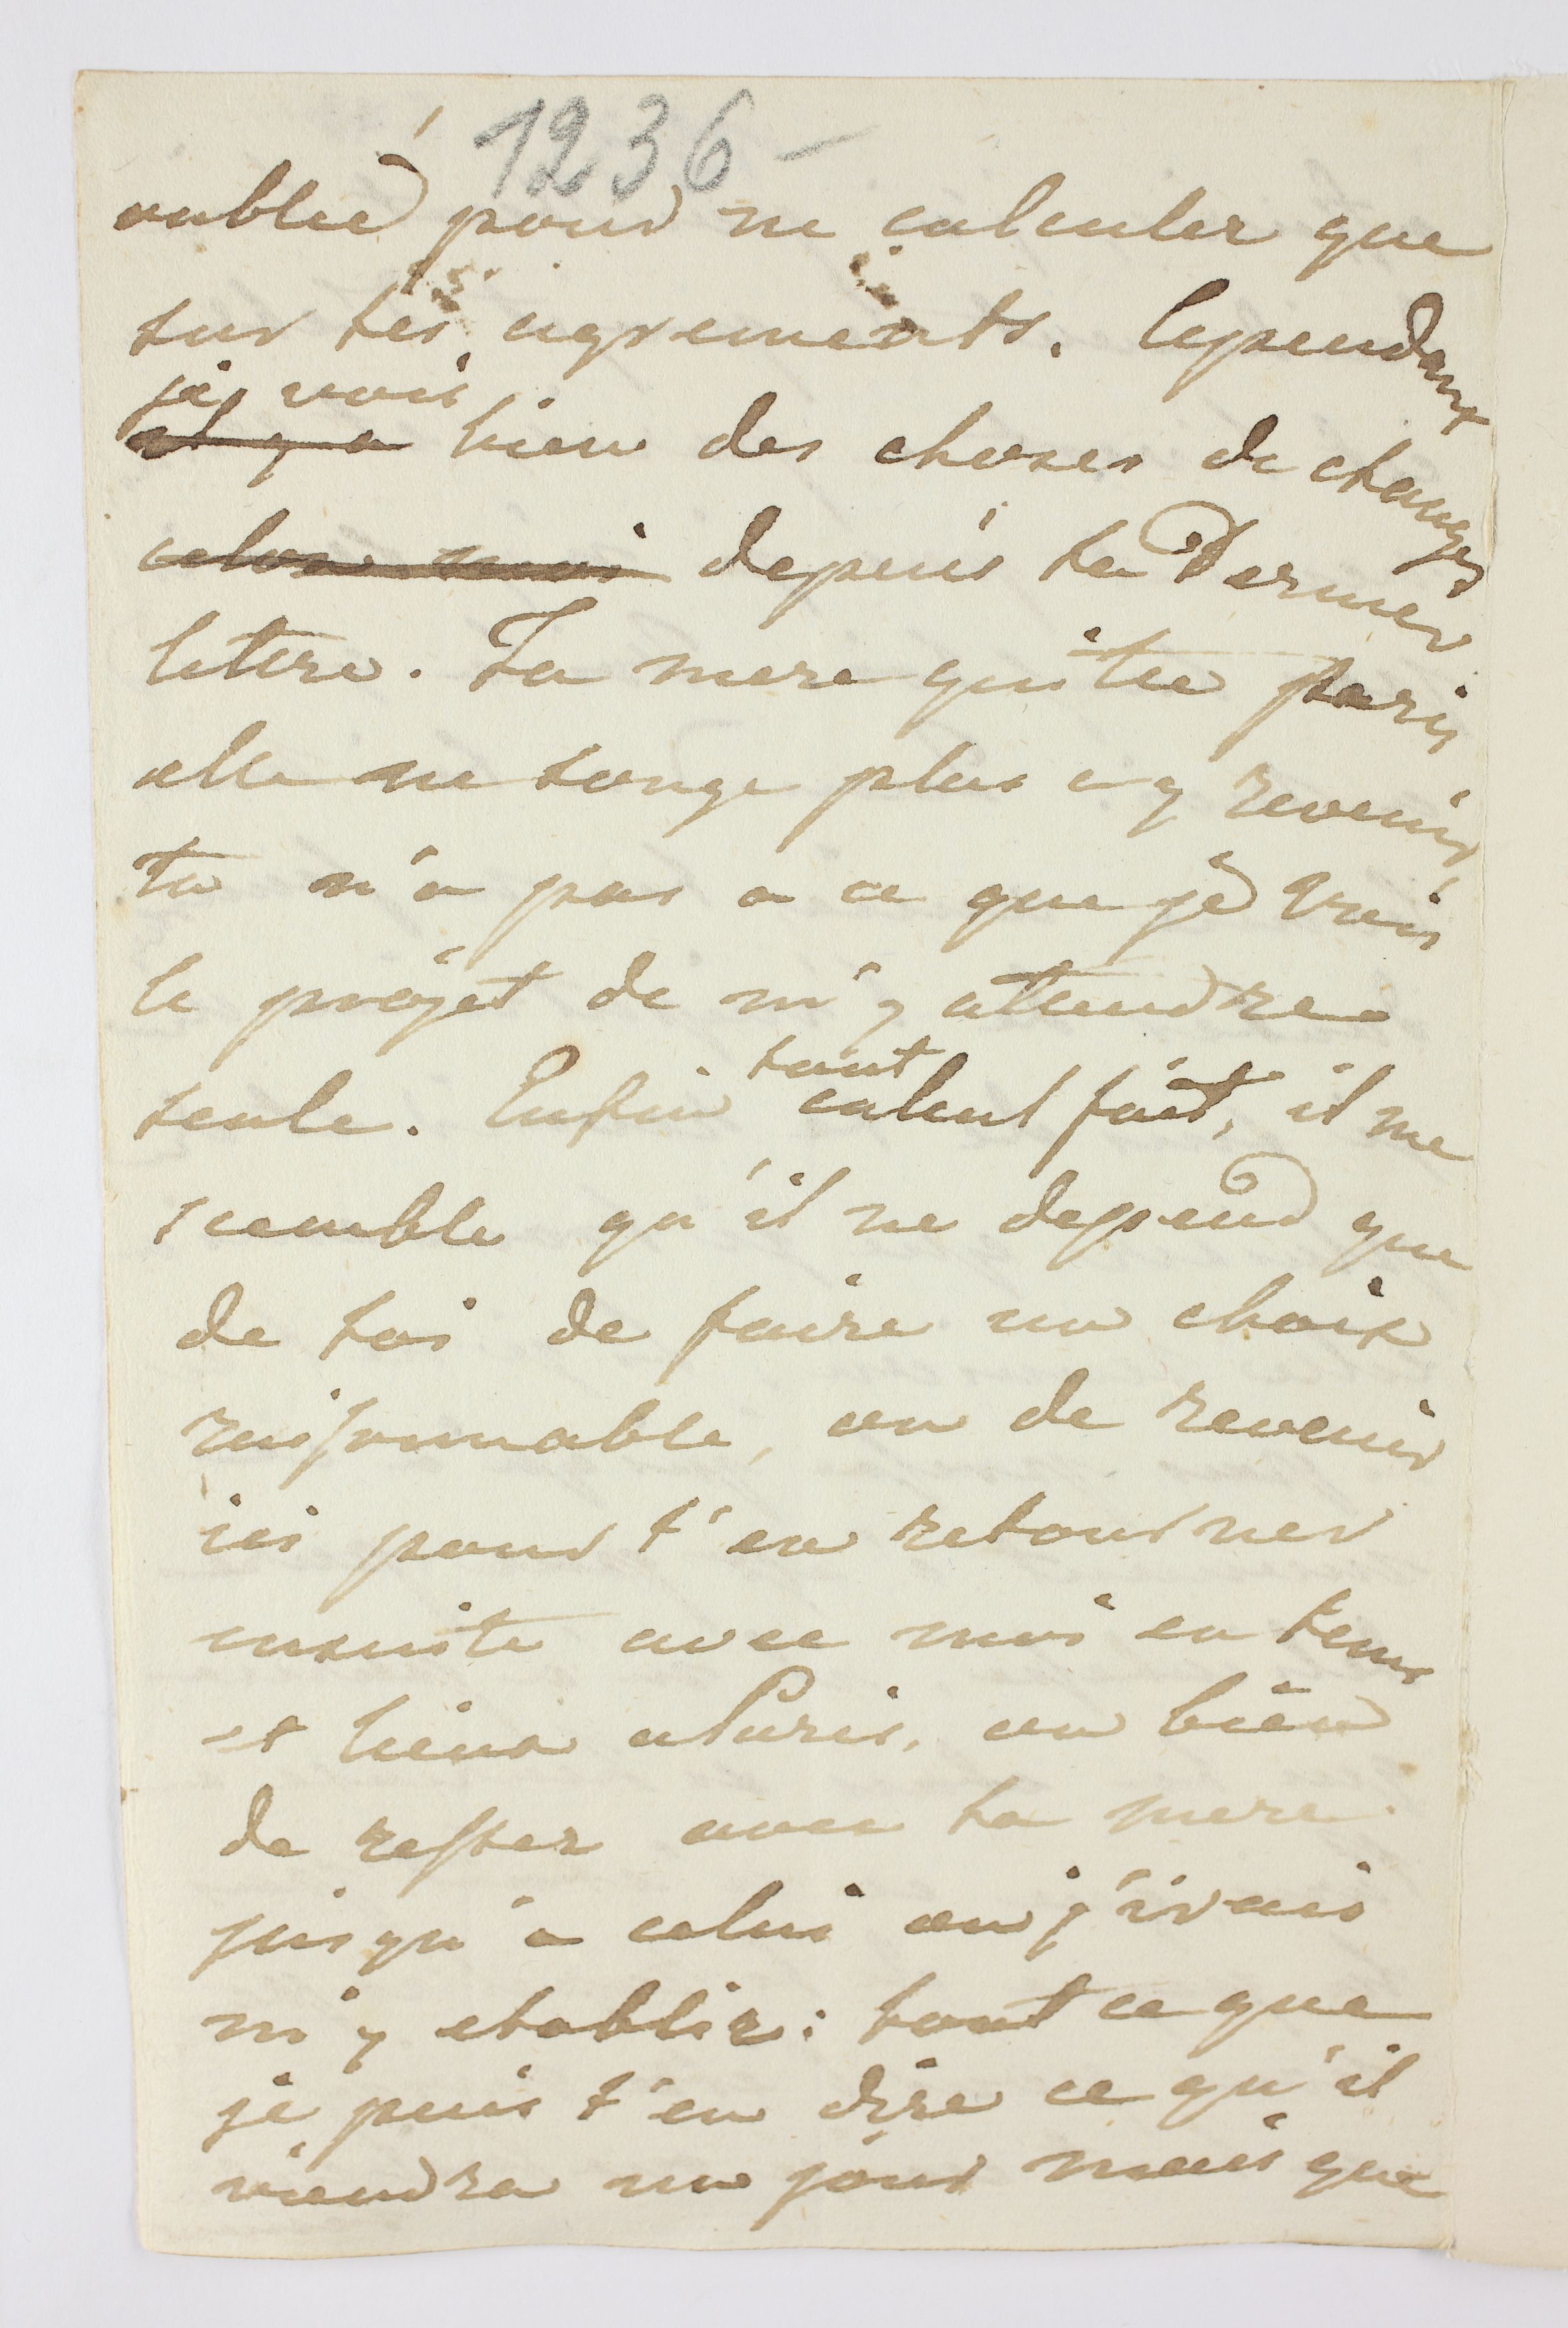 1236 -
oublié pour ne calculer que
sur tes agrements. Cependant
je vois
il y a bien des choses de changés
selon moi depuis ta dernier
lettre. Ta mere quitte paris
elle ne songe plus a y revenir,
tu n'a pas a ce que je vois
le projet de m'y attendre
seule. Enfin tout calcul fait, il me
scemble qu'il ne depend que
de toi de faire un choix
raisonnable, ou de revenir
ici pour t'en retourner
ensuite avec moi en tems
et lieux a Paris, ou bien
de rester avec ta mere
jusqu'a celui ou j'irais
m'y etablir: tout ce que
je puis t'en dire ce qu'il
viendra un jour mais que